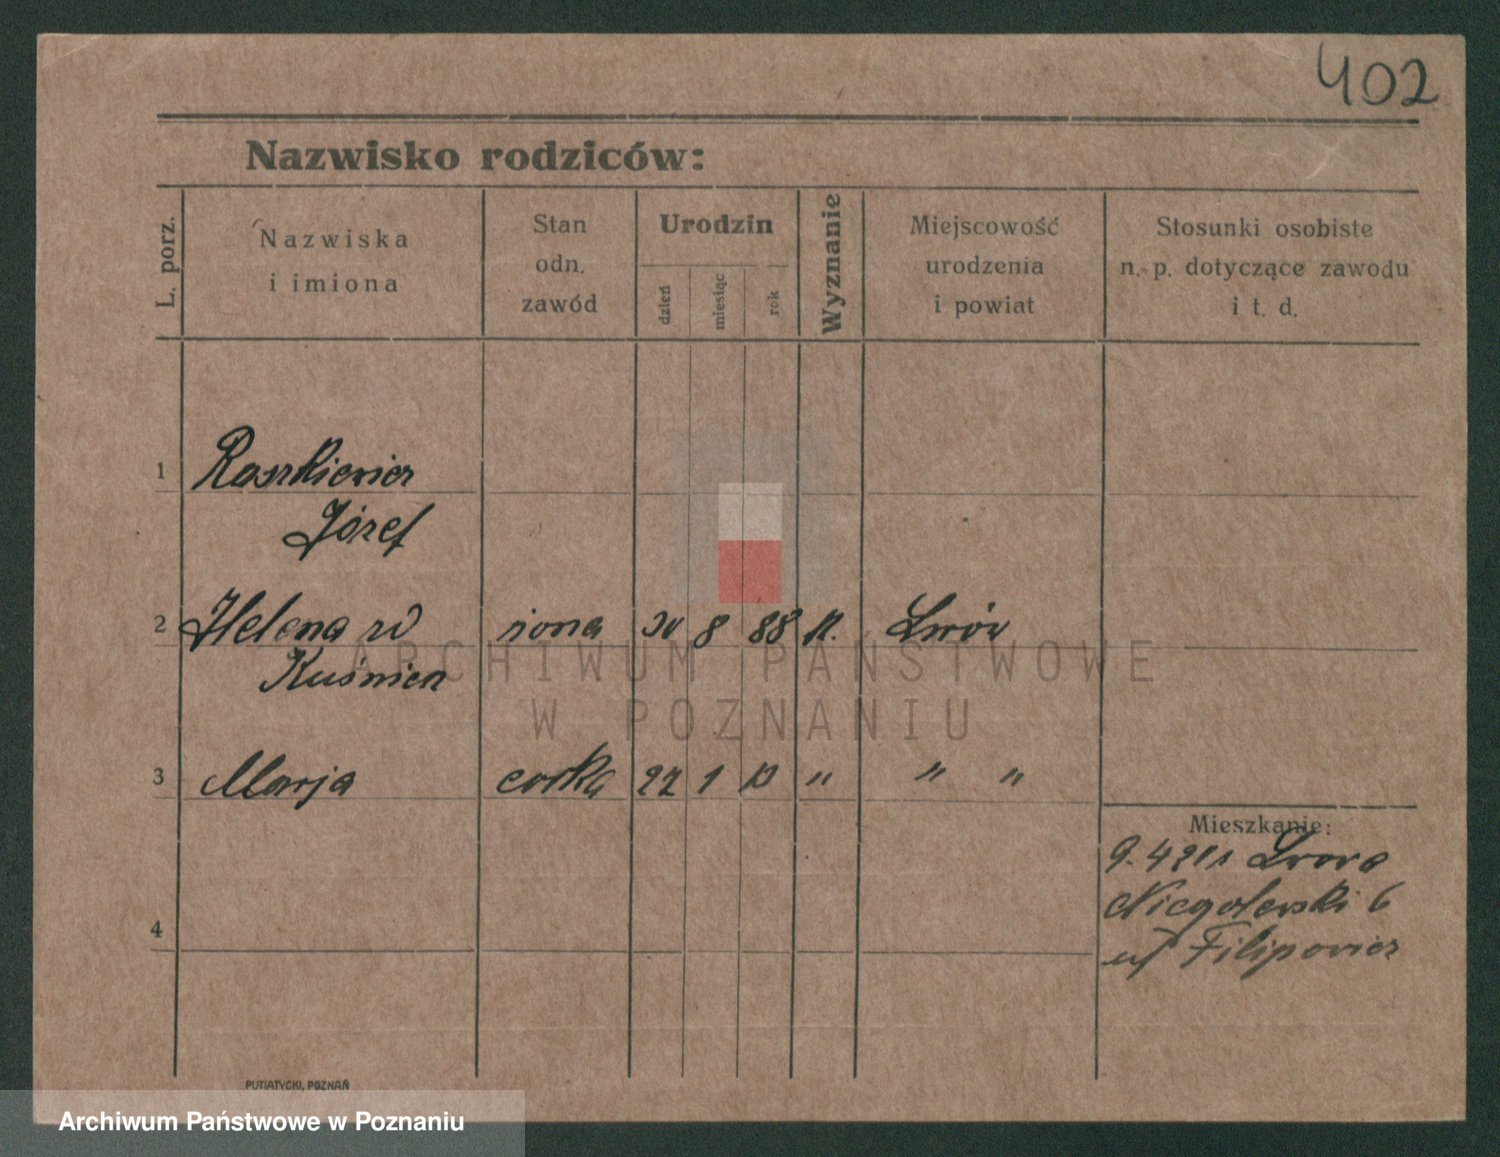 402
Nazwisko rodziców:
L. porz.
Nazwiska
i imiona
Stan
odn.
zawód
Urodzin
dzień
miesiąc
rok
Wyznanie
Miejscowość
urodzenia
i powiat
Stosunki osobiste
n. p. dotyczące zawodu
i t. d.
1 Raszkiewicz
Józef
2 Helena żona 30 8 88 K. Lwów
Kuśnierz
ARCHIWUM PAŃSTWOWE
W POZNANIU
3 Marja corka 22 1 " " "
Mieszkanie:
Lwowa
Niegolewski 6
Filipowicz
4
PUTIATYCKI, POZNAŃ
Archiwum Państwowe w Poznaniu